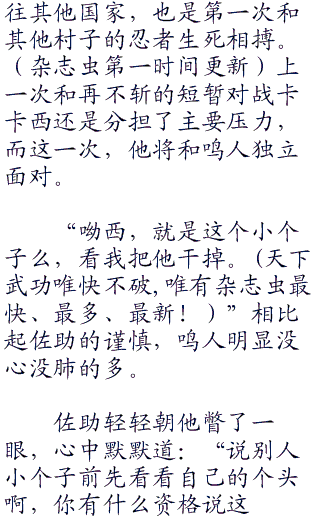 往其他国家，也是第一次和
其他村子的忍者生死相搏。
（杂志虫第一时间更新）上
一次和再不斩的短暂对战卡
卡西还是分担了主要压力，
而这一次，他将和鸣人独立
面对。
“呦西，就是这个小个
子么，看我把他干掉。（天下
武功唯快不破，唯有杂志虫最
快、最多、最新！）”相比
起佐助的谨慎，鸣人明显没
心没肺的多。
佐助轻轻朝他瞥了一
眼，心中默默道：“说别人
小个子前先看看自己的个头
啊，你有什么资格说这